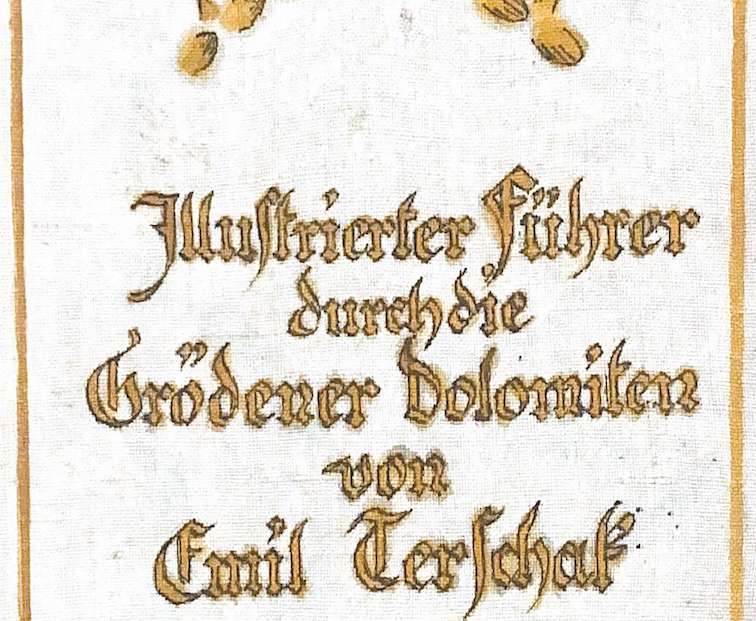 Illustrierter Führer
durch die
Grödener Dolomiten
von
Emil Terschak